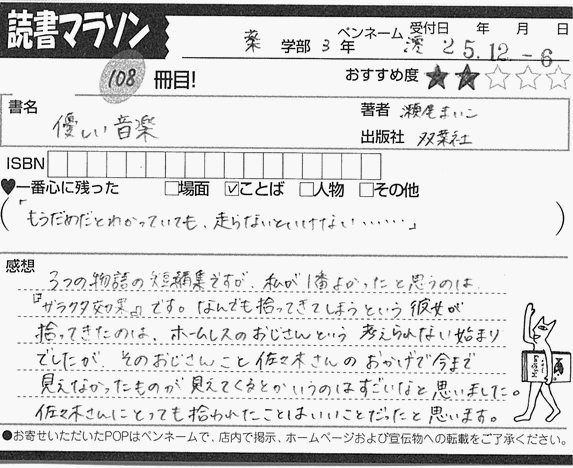 読書マラソン
薬 学部 3 年 ペンネーム 澪 受付日 年 月 日
25.12.-6
108 冊目! おすすめ度 ★★☆☆☆
書名 優しい音楽
著者 瀬尾まいこ
出版社 双葉社
ISBN
♥一番心に残った □場面 ☑ことば □人物 □その他
(「もうだめだとわかっていても、走らないといけない……」)
感想
3つの物語の短編集ですが、私が1番よかったと思うのは
『ガラクタ効果』です。なんでも拾ってきてしまうという彼女が
拾ってきたのは、ホームレスのおじさんという考えられない始まり
でしたが、そのおじさんこと佐々木さんのおかげで今まで
見えなかったものが見えてくるとかいうのはすごいなと思いました。
佐々木さんにとっても拾われたことはいいことだったと思います。
●お寄せいただいたPOPはペンネームで、店内で掲示、ホームページおよび宣伝物への転載をご了承ください。